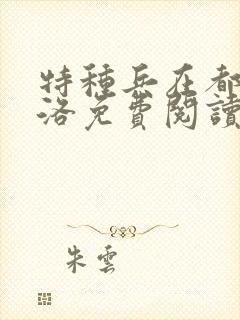 特種兵在都
洛免費閱讀
朱雲